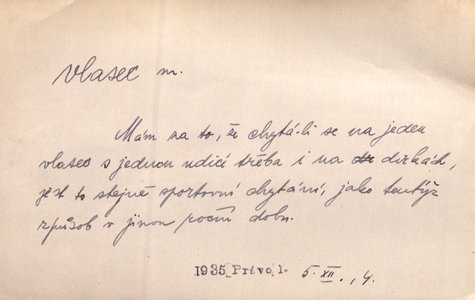 vlasec m.
Mám za to, že chytá-li se na jeden
vlasec s jednou udicí třeba i na dírkách,
jest to stejně sportovní chytání, jako tentýž
způsob v jinou roční dobu.
1935 Právo l. 5. XII., 4.